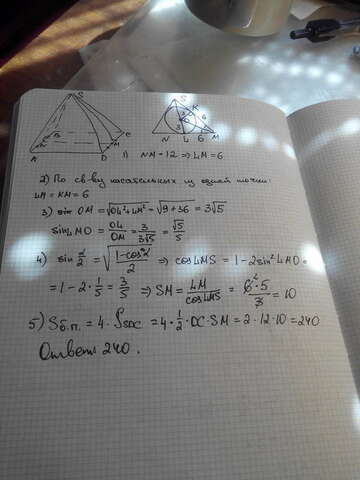 S
S
K
6
3
O
3
N L 6 M
B
C
M
A
D
1) NM = 12 ⇒ LM = 6
2) По св-ву касательных из одной точки:
LM = KM = 6
3) OM = √OL²+LM² = √9+36 = 3√5
sin LMO = OL/OM = 3/3√5 = √5/5
4) sin α/2 = √(1-cos α)/2 ⇒ cos LMS = 1-2sin² LMO =
= 1-2·1/5 = 3/5 ⇒ SM = LM/cos LMS = 6·5/3 = 10
5) Sб.п. = 4·S SDC = 4·1/2·DC·SM = 2·12·10 = 240
Ответ: 240.